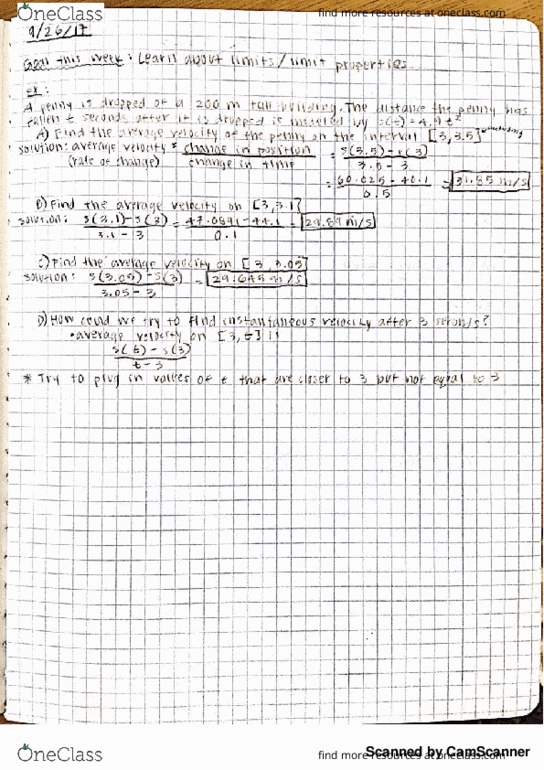 OneClass
find more resources at oneclass.com
9/26/17
Goal this week: Learn about limits/limit properties.
ex:
A penny is dropped of a 200 m tall building. The distance the penny has
fallen t seconds after it is dropped is modeled by s(t) = 4.9t²
A) Find the average velocity of the penny on the interval [3,3.5]
solution: average velocity = change in position = s(3.5)-s(3)
(rate of change) change in time 3.5-3
= 60.025 - 40.1 = 31.85 m/s
0.5
B) Find the average velocity on [3,3.1]
solution: s(3.1)-s(3) = 47.0891-44.1 = 29.89 m/s
3.1 - 3 0.1
C) Find the average velocity on [3,3.05]
solution: s(3.05)-s(3) = 29.645 m/s
3.05-3
D) How could we try to find instantaneous velocity after 3 seconds?
• average velocity on [3,t] is
s(t)-s(3)
t-3
* Try to plug in values of t that are closer to 3 but not equal to 3
OneClass
find more resources at oneclass.com
Scanned by CamScanner